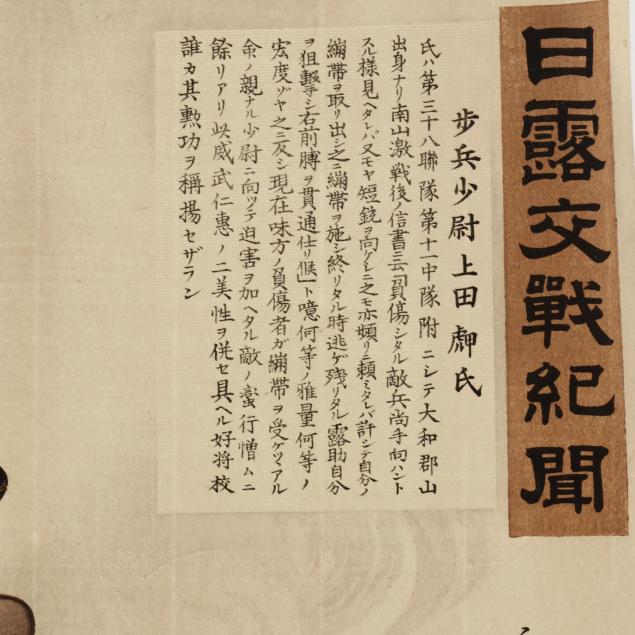 日露交戰紀聞
歩兵少尉上田 氏
氏ハ第三十八聯隊第十一中隊附ニシテ大和郡山
出身ナリ南山激戰後ノ信書ニ云「負傷シタル敵兵尚手向ハント
スル様見ヘタレバ又モヤ短銃ヲ向ケシニ之モ亦頻リニ頼ミタレバ許シテ自分ノ
繃帯ヲ取リ出シ之ニ繃帯ヲ施シ終リタル時逃ゲ残リタル露助自分
ヲ狙撃シ右前膊ヲ貫通仕リ候」ト噫何等ノ雅量何等ノ
宏度ゾヤ之ニ反シ現在味方ノ負傷者ガ繃帯ヲ受ケツヽアル
余ノ親ナル少尉ニ向ツテ迫害ヲ加ヘタル敵ノ蛮行憎ムニ
餘リアリ 威武仁惠ノ二美性ヲ併セ具ヘル好将校
誰カ其勲功ヲ稱揚セザラン